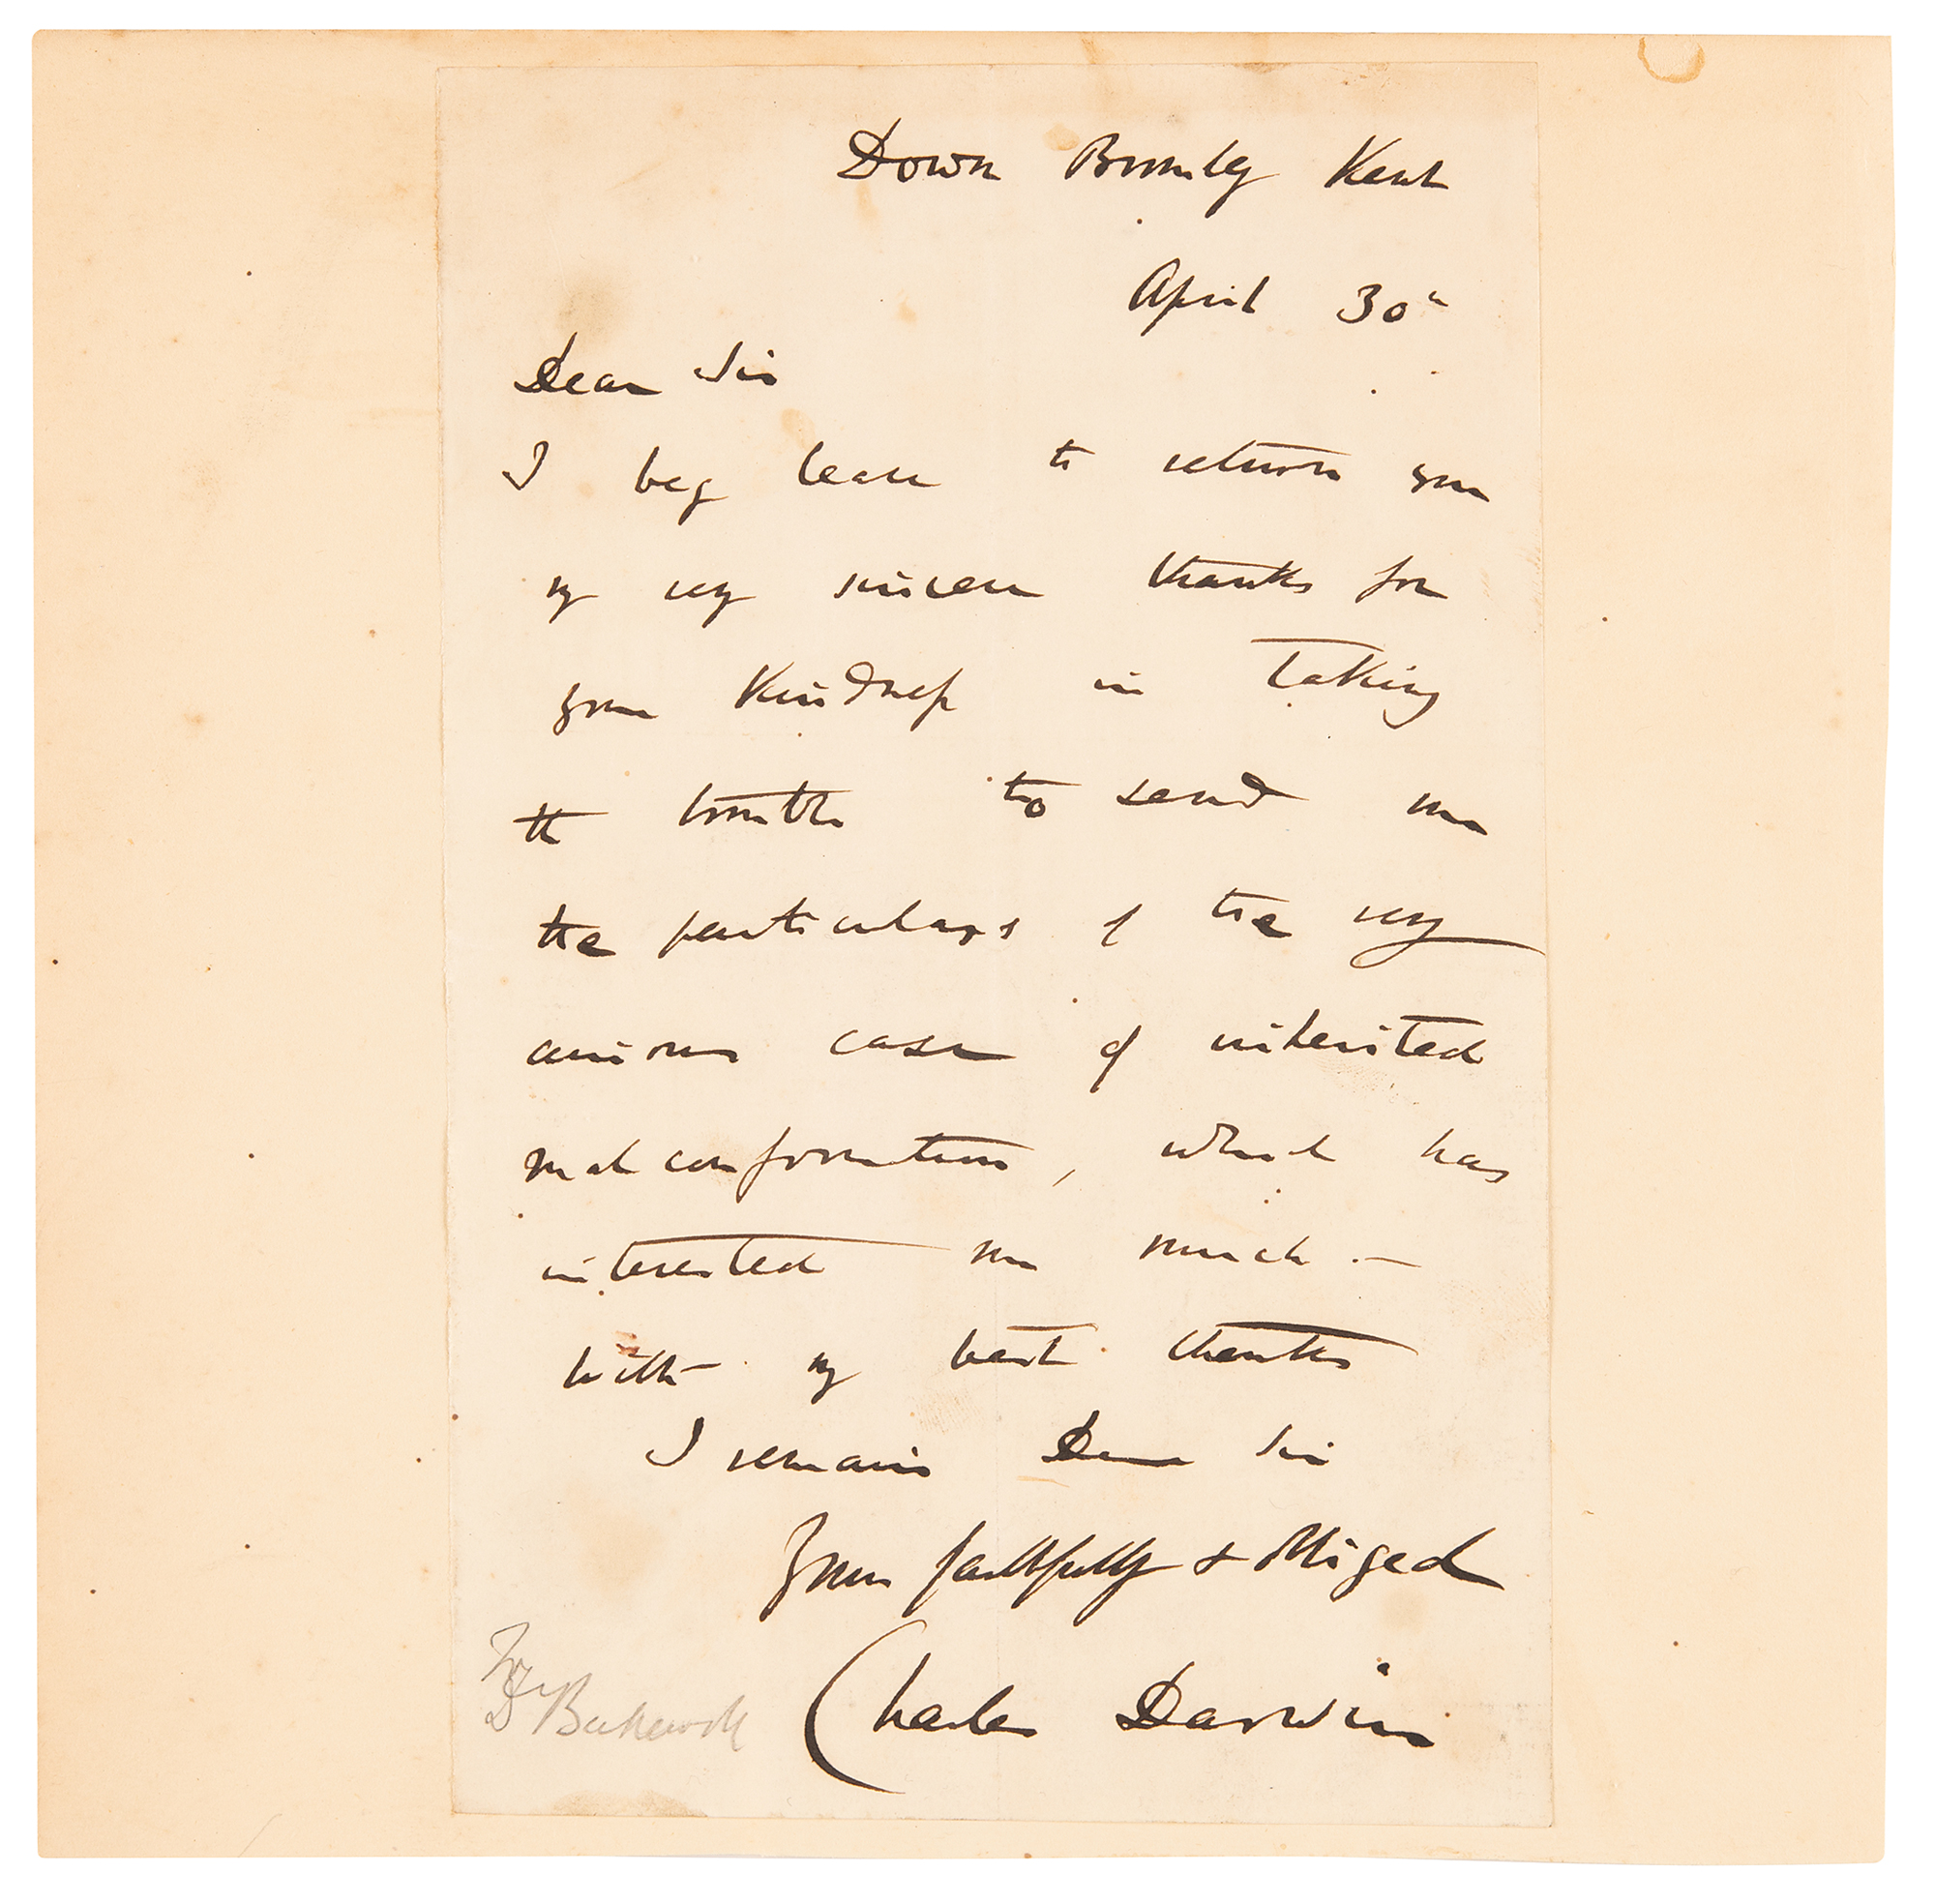 Down Bromley Kent
April 30th
Dear Sir
I beg leave to return you
my very sincere thanks for
your kindness in taking
the trouble to send me
the particulars of the very
curious case of inherited
mal conformation, which has
interested me much.—
With my best thanks
I remain Dear Sir
Yours faithfully & obliged
Charles Darwin